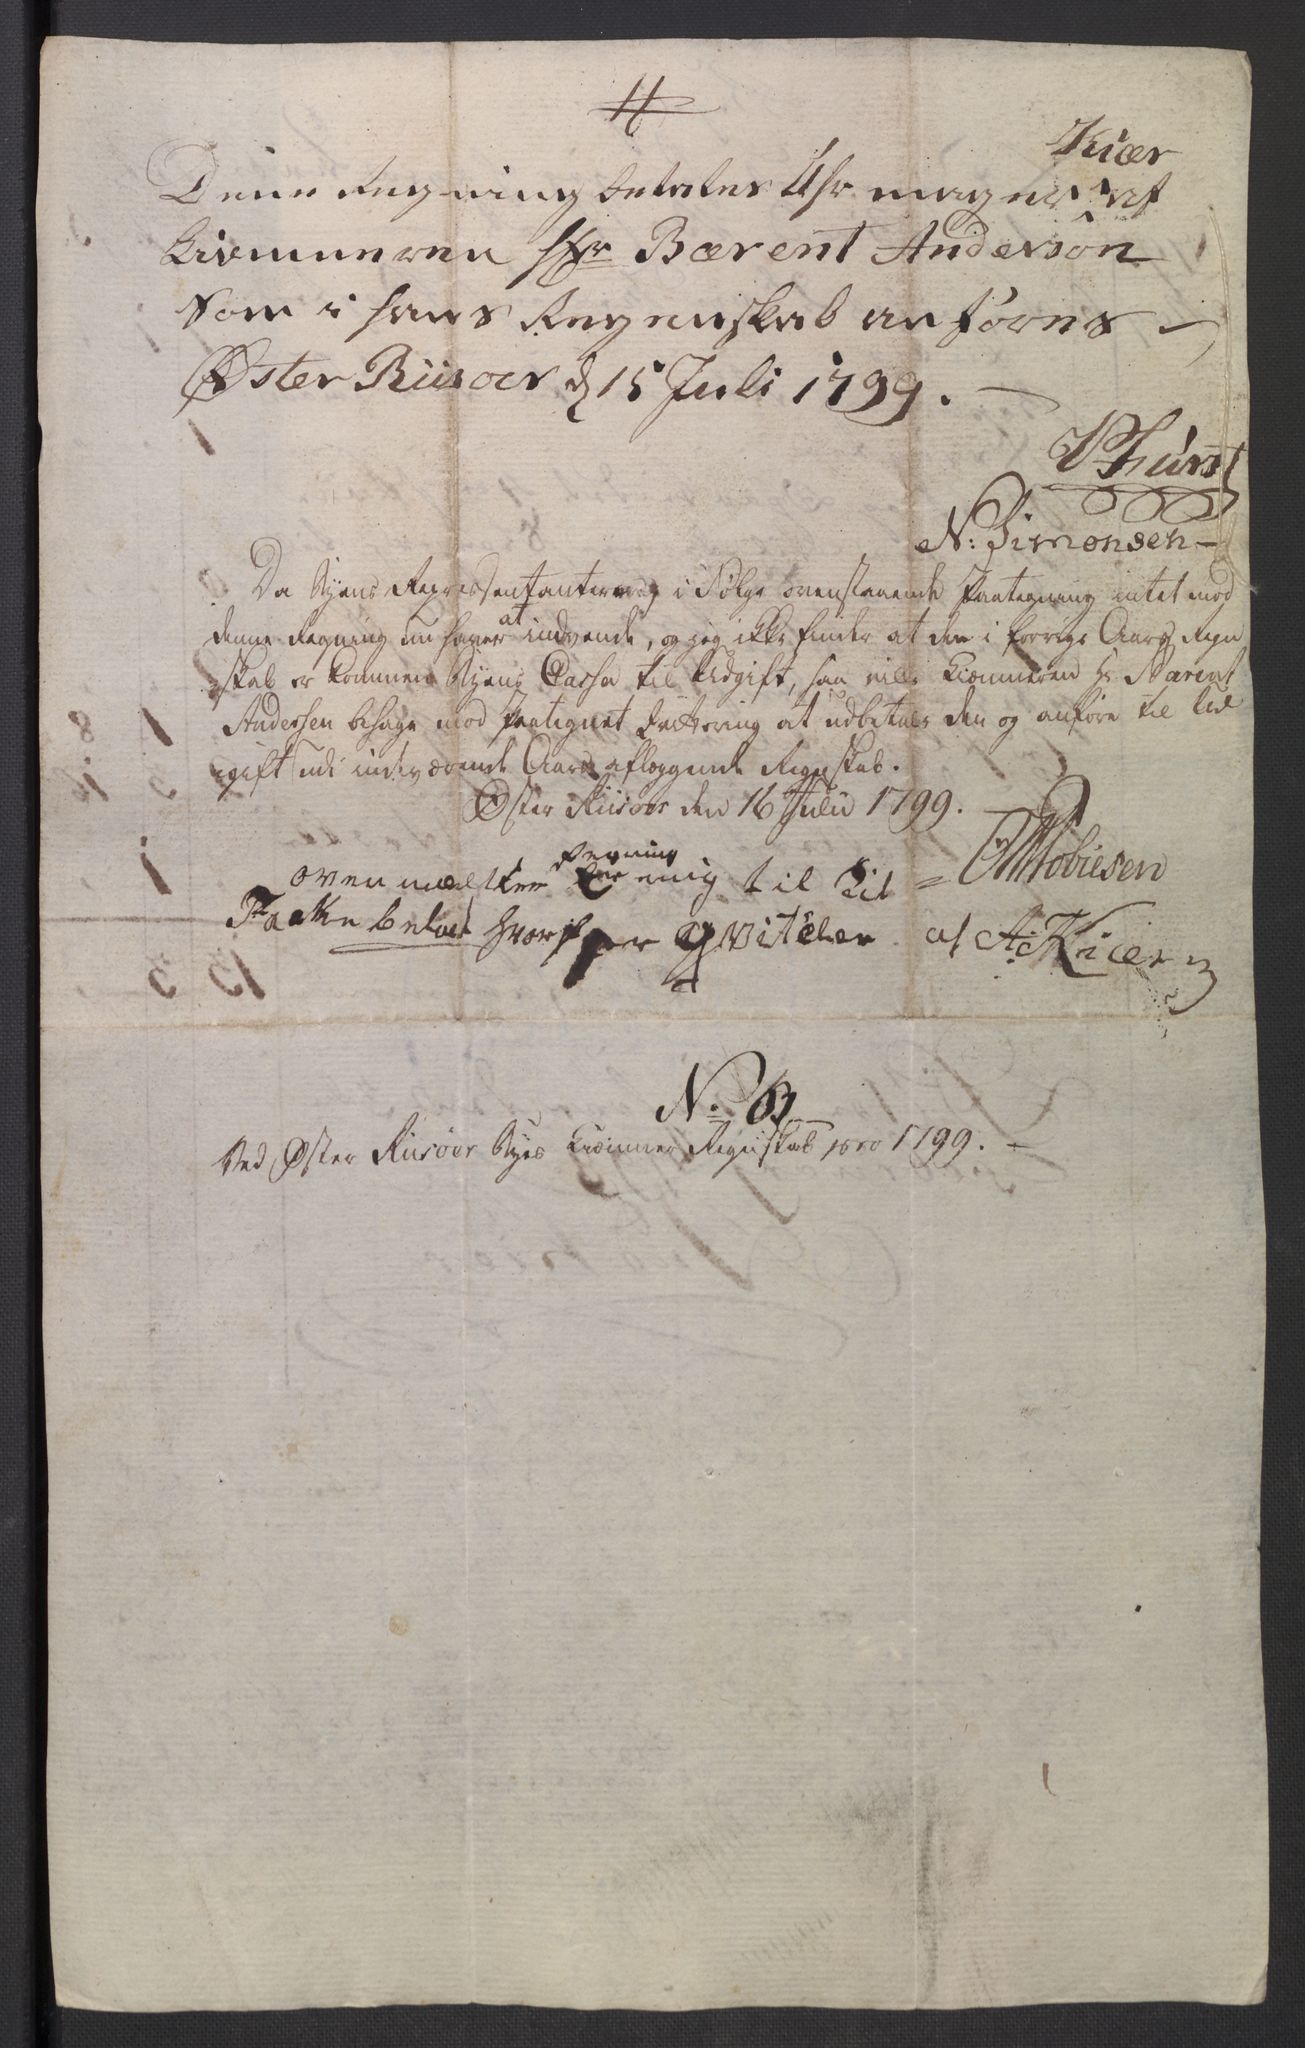 H
Kiær
Denne Regning betales Uhrmager af
Kiemneren Hr Bærent Anderson
som i hans Regenskab anføres
Øster Riisoer d 15 Juli 1799.
Fürst
N: Simonsen
Da Byens Repræsentantere i Følge ovenstaaende Paategning intet mod
denne Regning haver at indvende, og jeg ikke finder at den i forrige Aars Regn
skab er kommen Byens Cassa til Udgift, saa ville Kiæmneren Hr Barent
Andersen behage mod paategnet Qvittering at udbetale den og anføre til Ud
gift udi indeværende Aars aflæggende Regnskab.
Øster Riisøer den 16 Julii 1799.
Tobiesen
Regning
oven mældte er mig til
Tacke betalt hvor for qvitterer af A: Kiær
No. 13
Ved Øster Riisøer Byes Kiæmner Regnskab pro 1799.